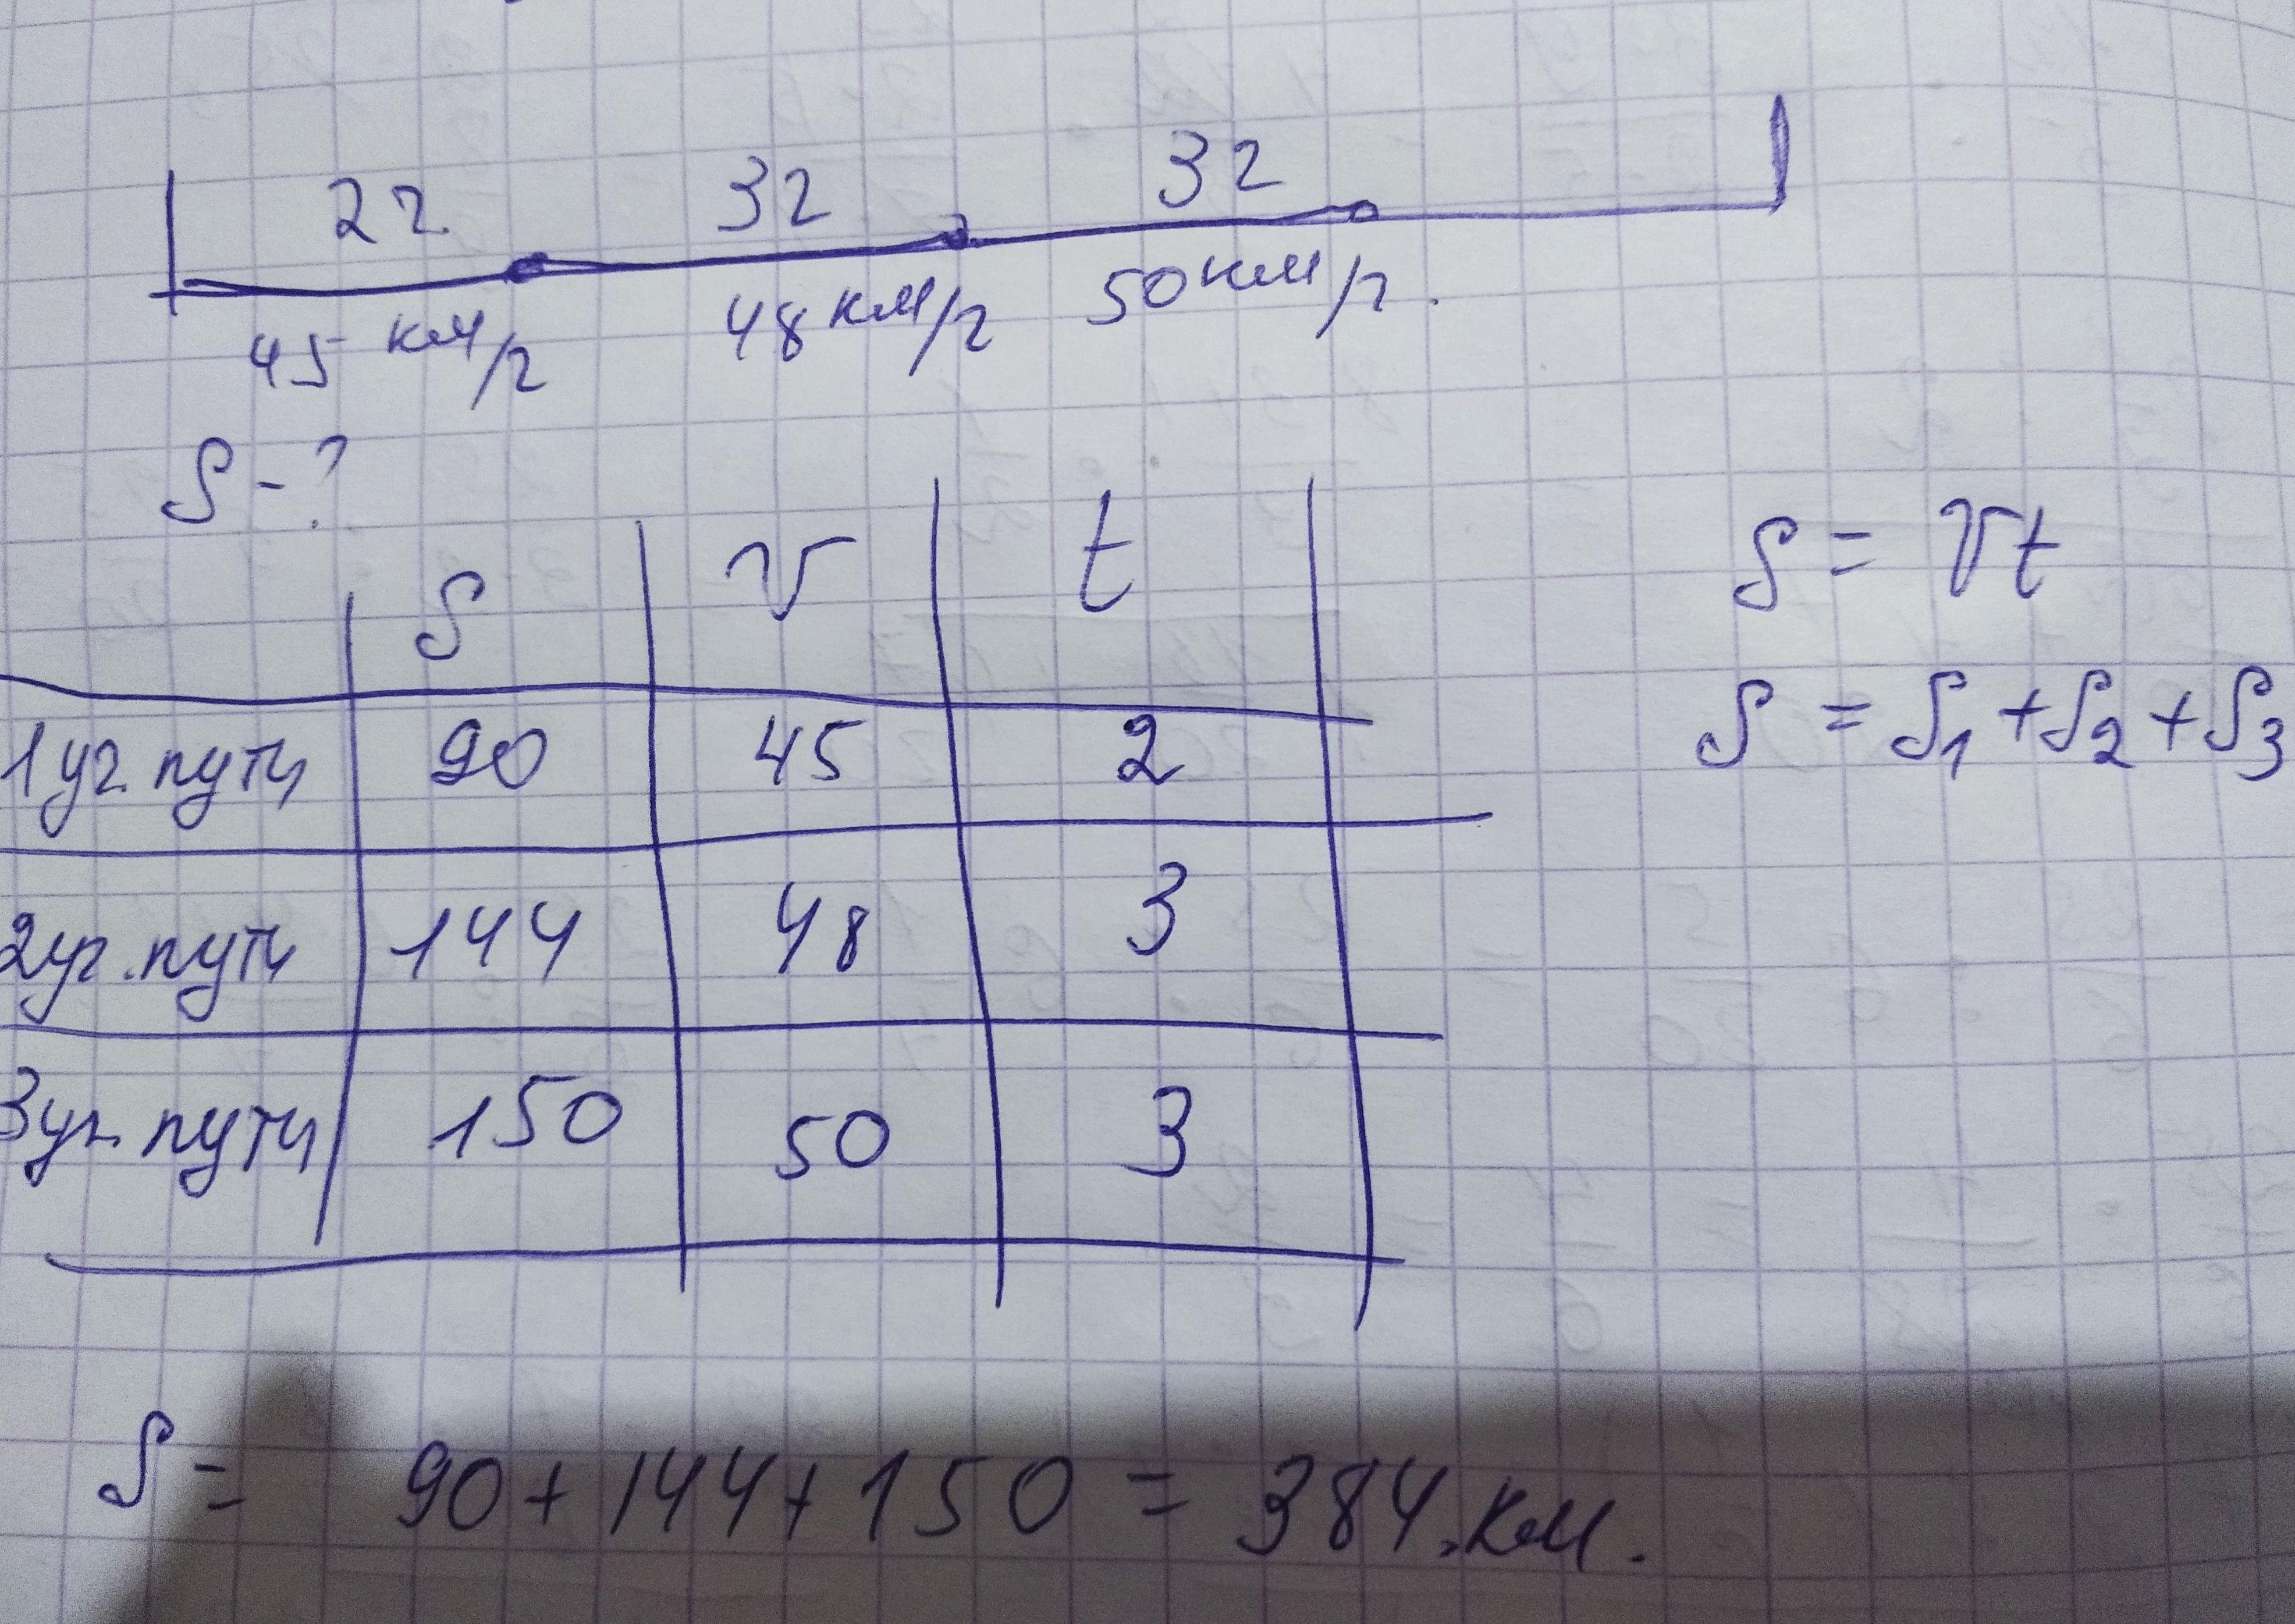 2ч. 3ч 3ч
45 км/ч 48 км/ч 50 км/ч.
S - ?
S v t
1 уч. пути 90 45 2
2 уч. пути 144 48 3
3 уч. пути 150 50 3
S = vt
S = S₁ + S₂ + S₃
S = 90 + 144 + 150 = 384 км.